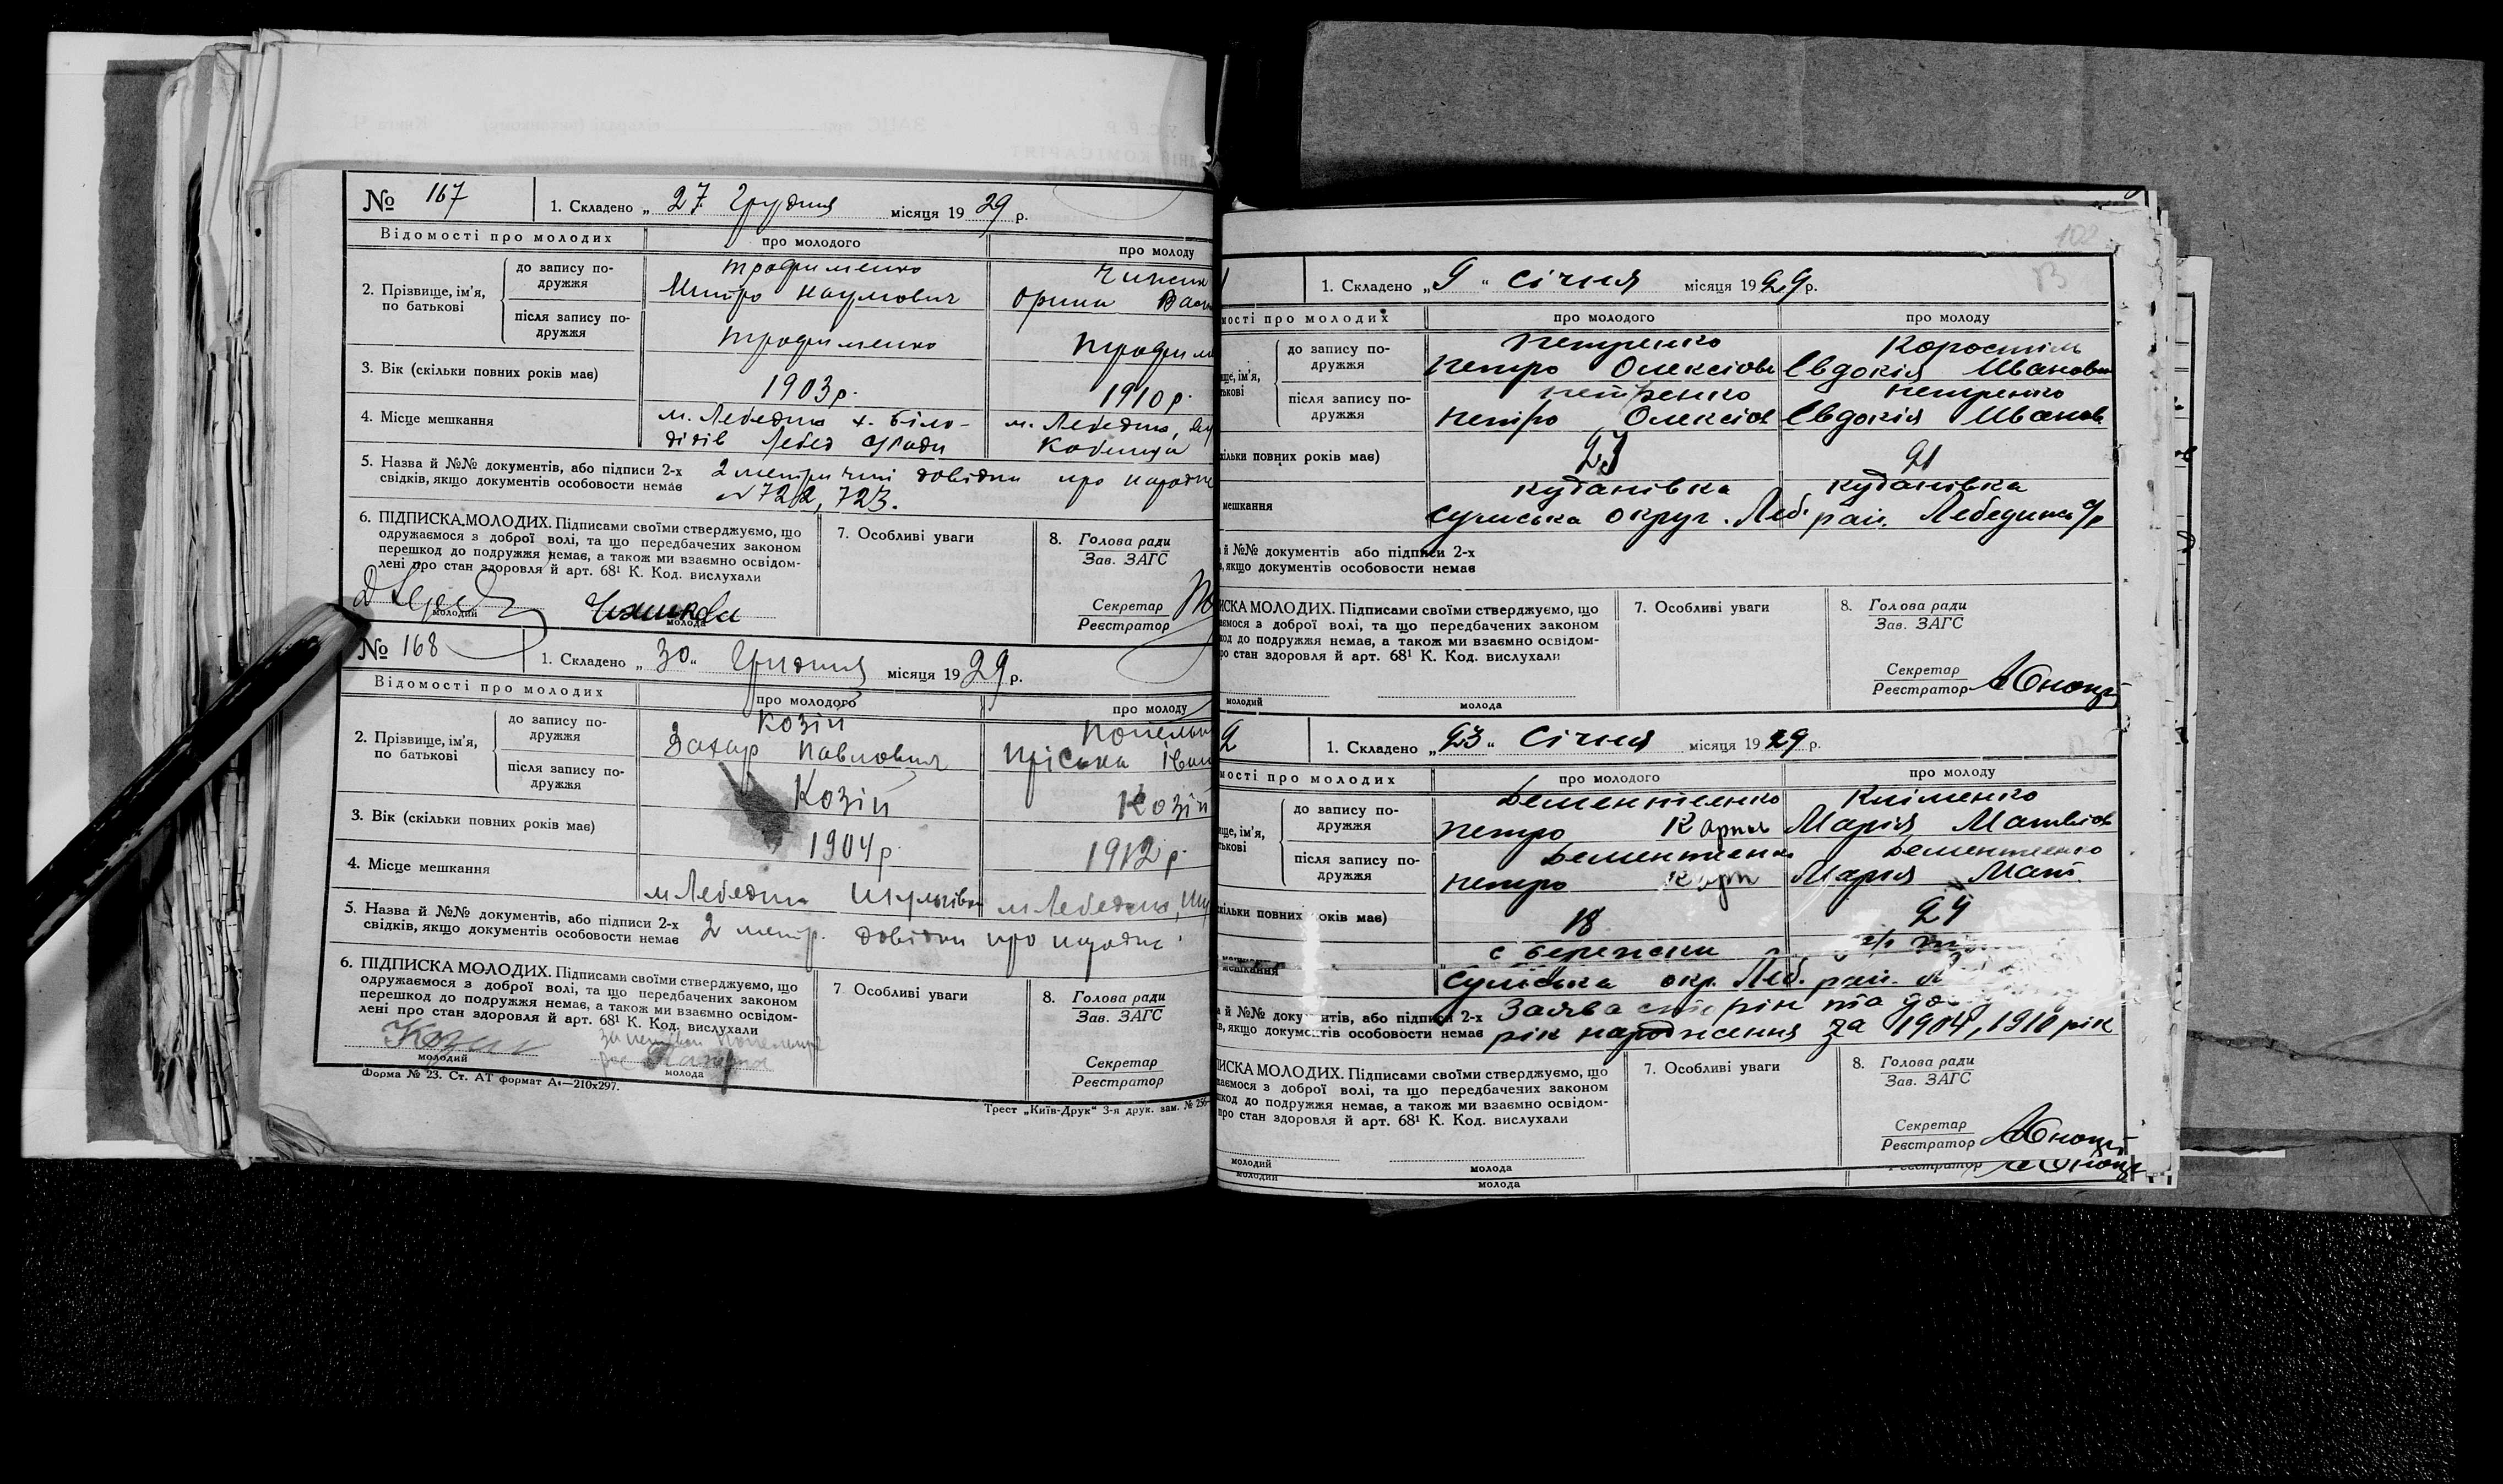 № 167
1. Складено „ 27 Грудня місяця 1929 р.
Відомості про молодих
про молодого
про молоду
2. Прізвище, ім'я, по батькові
до запису подружжя
Трофименко
Митро Наумович
Орина
після запису подружжя
Трофименко
3. Вік (скільки повних років має)
1903 р.
1910 р.
4. Місце мешкання
м. Лебедин х. Біло-
дідів Лебед с/ради
м. Лебедин,
5. Назва й №№ документів, або підписи 2-х
свідків, якщо документів особовости немає
2 метричні довідки про
№ 722, 723.
6. ПІДПИСКА МОЛОДИХ. Підписами своїми стверджуємо, що
одружаємося з доброї волі, та що передбачених законом
перешкод до подружжя немає, а також ми взаємно освідом-
лені про стан здоровля й арт. 68¹ К. Код. вислухали
молодий
молода
7. Особливі уваги
8. Голова ради
Зав. ЗАГС
Секретар
Реєстратор
№ 168
1. Складено „ 30 " Грудня місяця 1929 р.
Відомості про молодих
про молодого
про молоду
2. Прізвище, ім'я,
по батькові
до запису по-
дружжя
Козій
Захар Павлович
Пріська
після запису по-
дружжя
Козій
Козій
3. Вік (скільки повних років має)
1904 р.
1912 р.
4. Місце мешкання
м Лебедин
м Лебедин,
5. Назва й №№ документів, або підписи 2-х
свідків, якщо документів особовости немає
2 метр. довідки про
6. ПІДПИСКА МОЛОДИХ. Підписами своїми стверджуємо, що
одружаємося з доброї волі, та що передбачених законом
перешкод до подружжя немає, а також ми взаємно освідом-
лені про стан здоровля й арт. 68¹ К. Код. вислухали
молодий
молода
7 Особливі уваги
8. Голова ради
Зав. ЗАГС
Секретар
Реєстратор
Форма № 23. Ст. АТ формат А₄—210x297.
Трест „Київ-Друк" 3-я друк. зам. № 256
102
1. Складено „ 9 " Січня місяця 1929 р.
мості про молодих
про молодого
про молоду
до запису по-
дружжя
Петренко
Петро Олексіов
Коростіль
Євдокія Иванов
після запису по-
дружжя
Петренко
Петро Олексіов
Петренко
Євдокія Иванов
повних років має)
23
21
мешкання
кудановка
кудановка
Сумська округ. Леб. рай. Лебединсь с/р
й №№ документів або підписи 2-х
якщо документів особовости немає
ИСКА МОЛОДИХ. Підписами своїми стверджуємо, що
аємося з доброї волі, та що передбачених законом
код до подружжя немає, а також ми взаємно освідом-
ро стан здоровля й арт. 68¹ К. Код. вислухали
молодий
молода
7. Особливі уваги
8. Голова ради
Зав. ЗАГС
Секретар
Реєстратор
2
1. Складено „ 23 " Січня місяця 1929 р.
мості про молодих
про молодого
про молоду
до запису по-
дружжя
Дементиенко
Петро Карпов
Кліменко
Марія Матвіов
після запису по-
дружжя
Дементиенко
Петро Карп
Дементиенко
Марія Мат.
повних років має)
18
24
мешкання
Сумська окр. Леб. рай.
якщо документів особовости немає
Заява сторін та
рік народження за 1904, 1910 рік
ИСКА МОЛОДИХ. Підписами своїми стверджуємо, що
аємося з доброї волі, та що передбачених законом
код до подружжя немає, а також ми взаємно освідом-
про стан здоровля й арт. 68¹ К. Код. вислухали
молодий
молода
7. Особливі уваги
8. Голова ради
Зав. ЗАГС
Секретар
Реєстратор
Реєстратор
молодий
молода